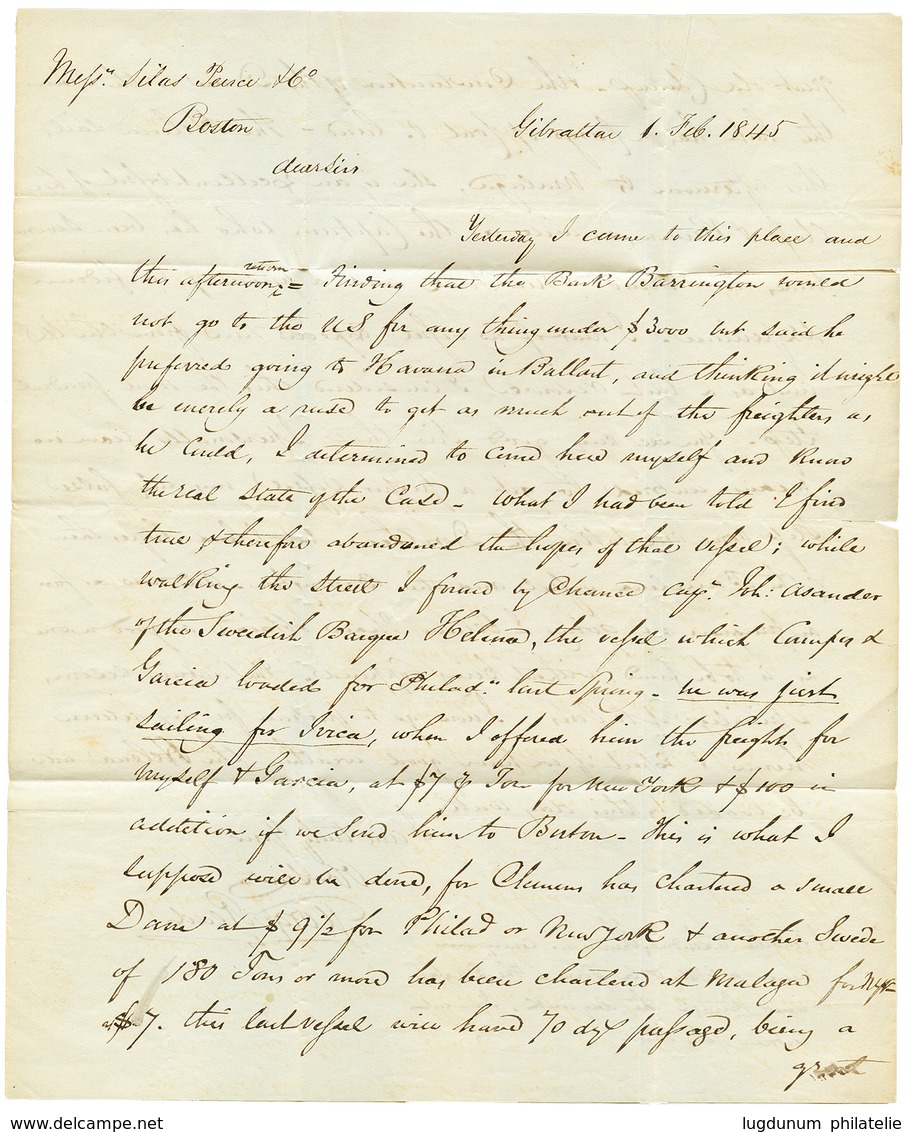 Messrs. Silas Peirce & Co
Boston
Gibraltar 1. Feb. 1845
dear Sirs
Yesterday I came to this place and
this afternoon return = Finding that the Bark Barrington would
not go to the US for any thing under $3000 but said he
preferred going to Havana in Ballast, and thinking it might
be merely a ruse to get as much out of the freighters as
he could, I determined to come here myself and know
the real state of the case - what I had been told I find
true & therefore abandoned the hopes of that vessel; while
walking the street I found by chance Capt. Joh: Asander
of the Swedish Barque Helena, the vessel which Crumpes &
Garcia loaded for Philad. last spring - he was just
sailing for Ivica, when I offered him the freight for
myself & Garcia, at $7 p Ton for New York & $100 in
addition if we send him to Boston - This is what I
suppose will be done, for Clemens has chartered a small
Dane at $ 9 1/2 for Philad or New York & another Swede
of 180 Tons or more has been chartered at Malaga for NYk
at $ 7. this last vessel will have 70 dys passage, being a
great
www.delcampe.net
lugdunum philatelie